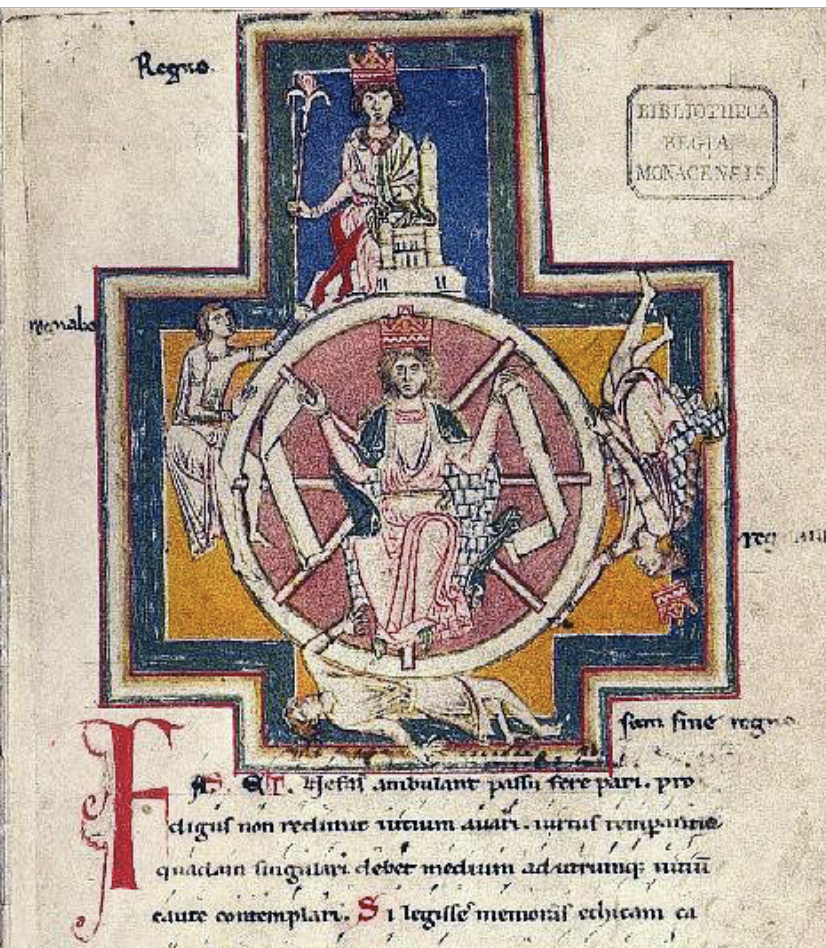 Regno.
BIBLIOTHECA
REGIA
MONACENSIS.
regnabo
sum sine regno
FAS. ET. Nefas ambulant passu fere pari. pro
digus non redimit uitium auari. uirtus temperantia
quadam singulari debet medium ad utrumq; uitiū
caute contemplari. Si legisse memoras ethicam ca